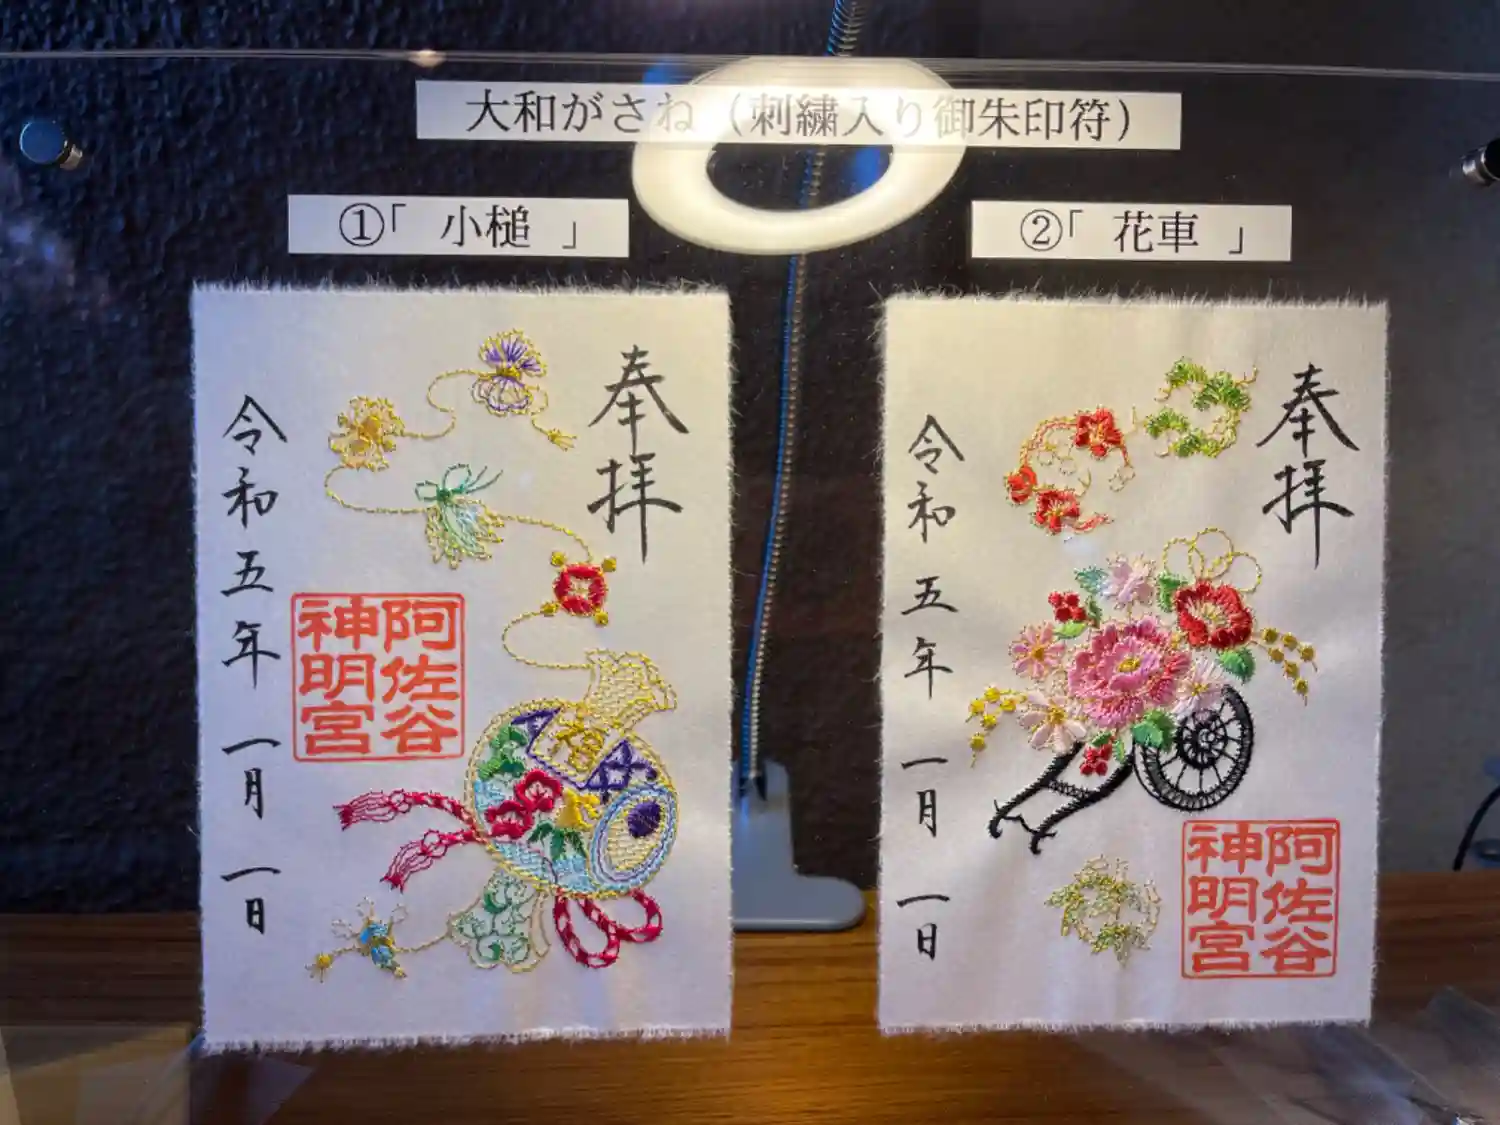 大和がさね（刺繍入り御朱印符）
①「 小槌 」
②「 花車 」
奉拝
阿佐谷
神明宮
令和五年 一月 一日
奉拝
阿佐谷
神明宮
令和五年 一月 一日